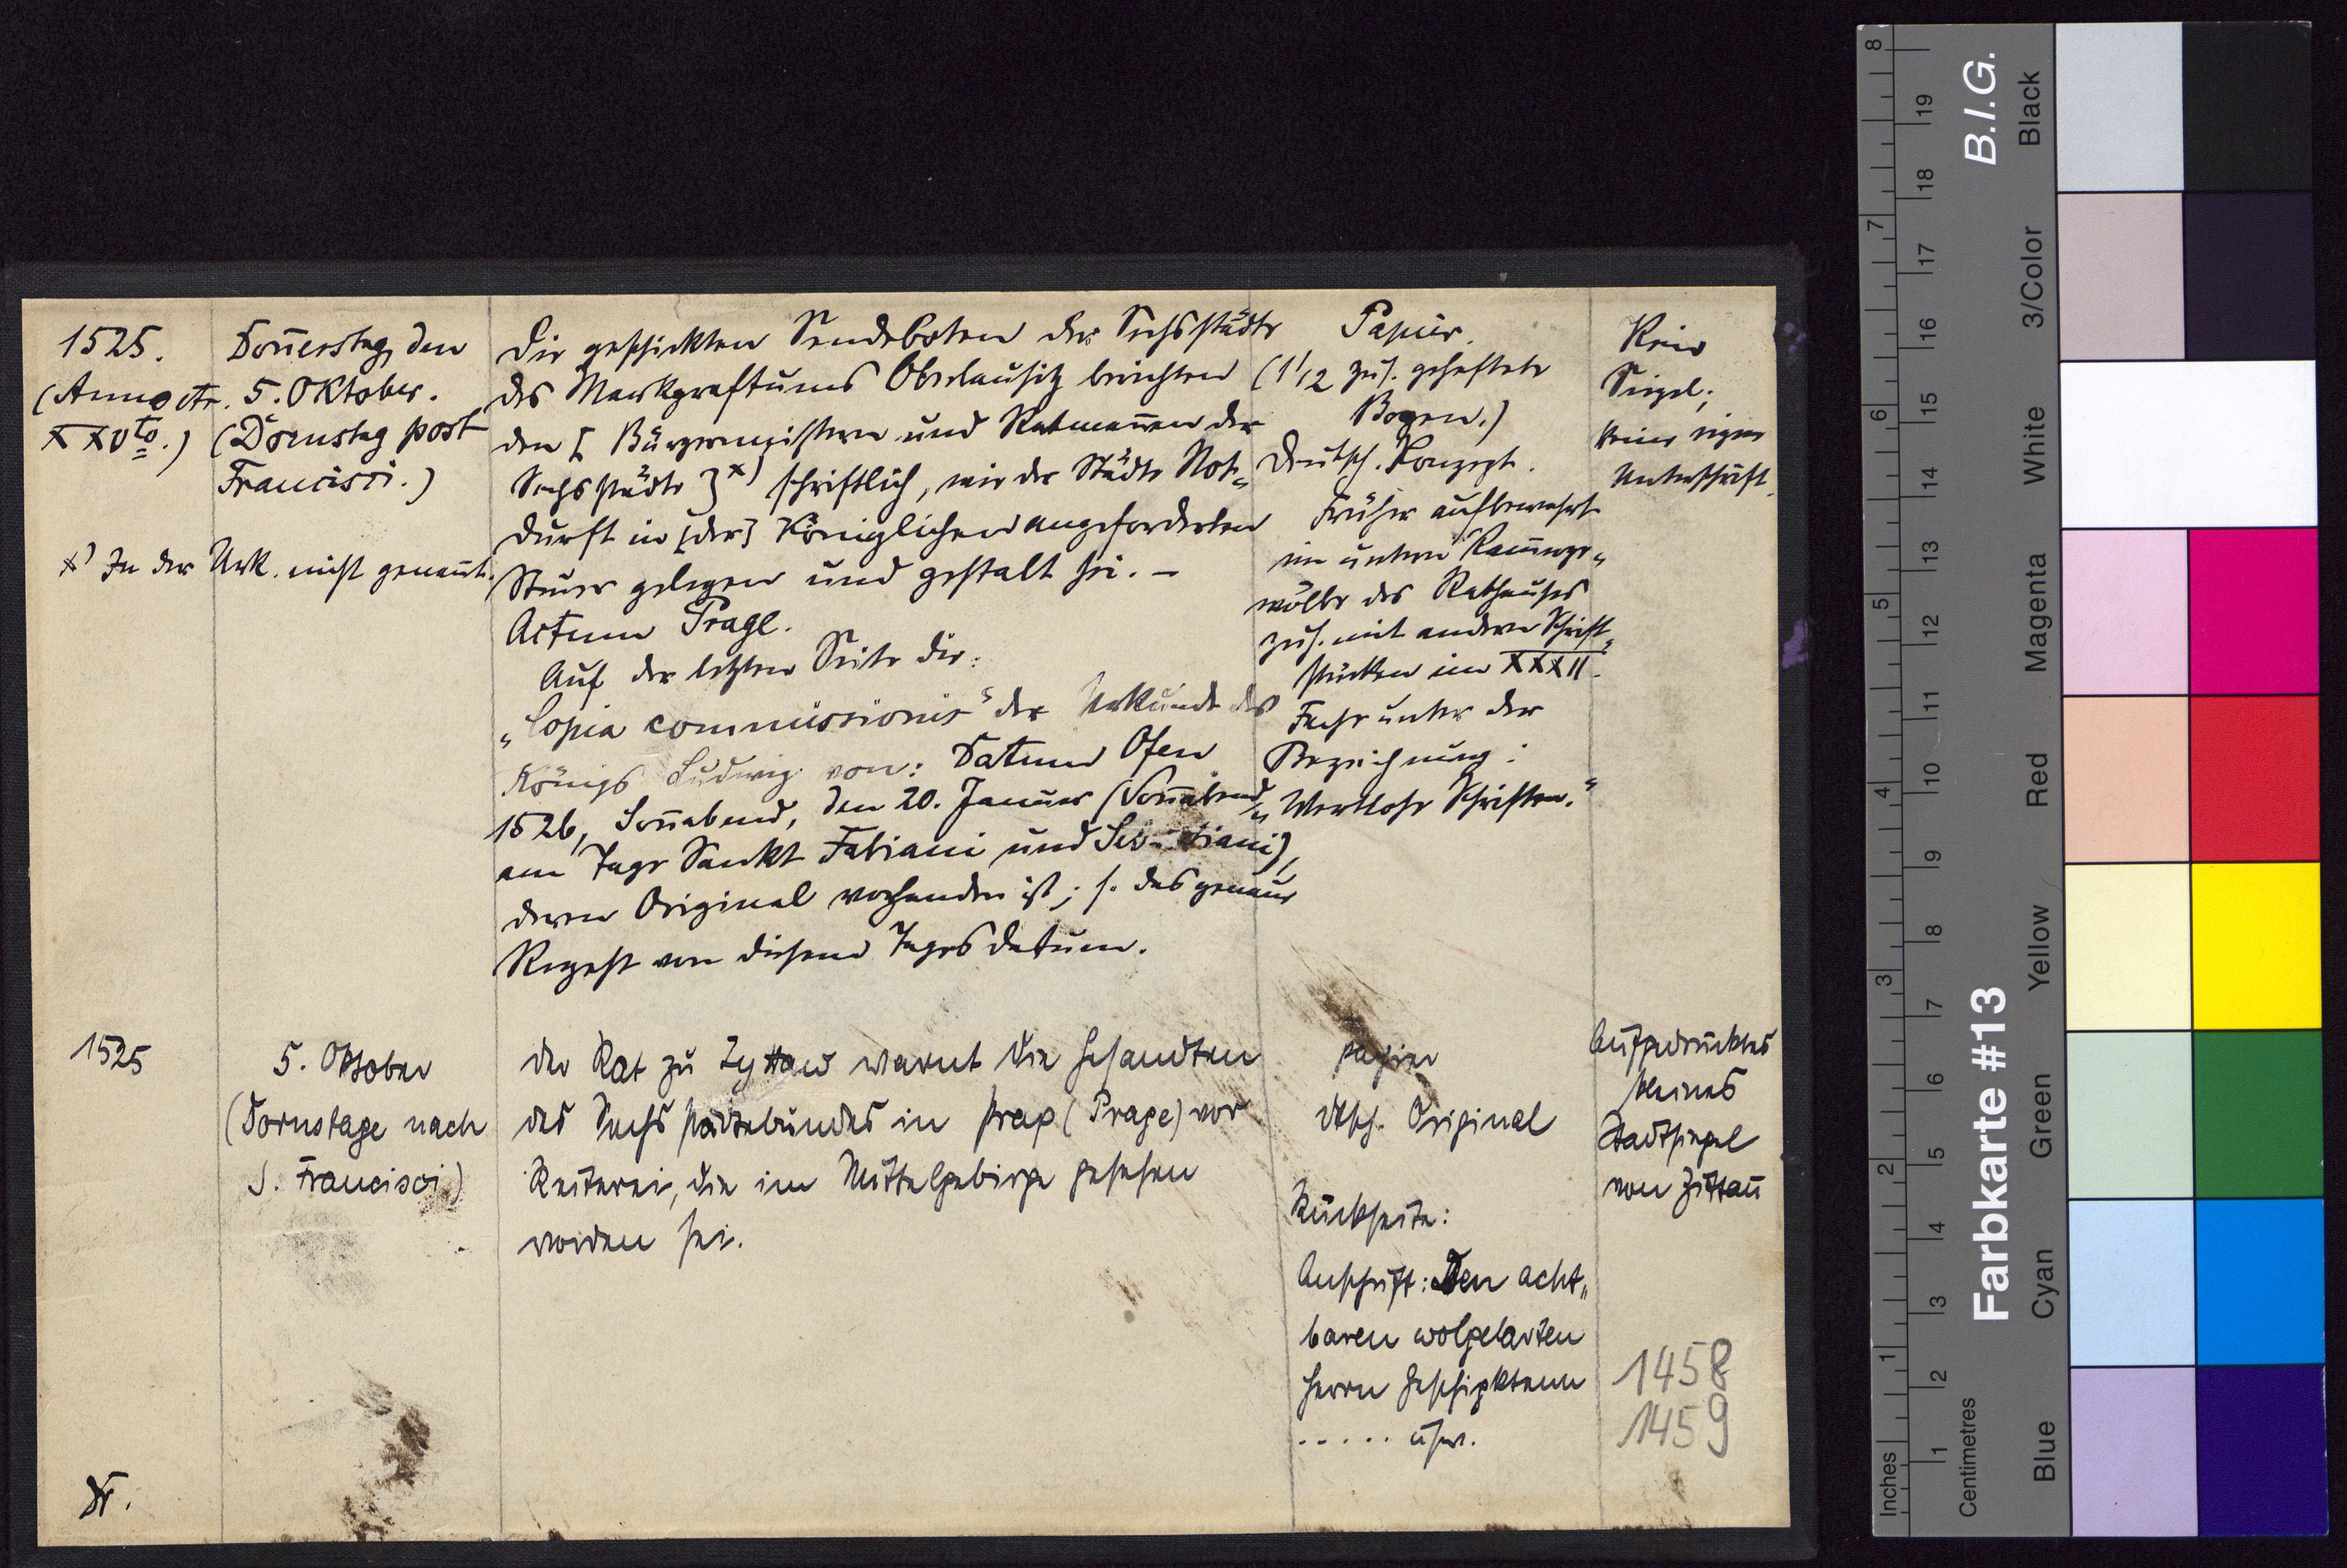 1525.
(Anno etc.
XXVto.)
Donnerstag, den
5. Oktober.
(Dornstag post
Francisci.)
x) In der Urk. nicht genannt.
Die geschickten Sendeboten der Sechsstädte
des Markgraftums Oberlausitz berichten
den [Bürgermeistern und Ratmannen der
Sechsstädte]x) schriftlich, wie der Städte Not-
durft in [der] königlichen angeforderten
Steuer gelegen und gestalt sei. –
Actum Prage.
Auf der letzten Seite die:
„Copia commissionis“ der Urkunde des
Königs Ludwig von: Datum Ofen
1526, Sonnabend, den 20. Januar (Sonnabend
am Tage Sankt Fabiani und Sebastiani),
deren Original vorhanden ist; s. das genaue
Regest von diesem Tagesdatum.
Papier.
(1 1/2 zus. geheftete
Bogen.)
Deutsch. Konzept.
Früher aufbewahrt
im untern Kammerge-
wölbe des Rathauses
zus. mit andern Schrift-
stücken im XXXII.
Fache unter der
Bezeichnung:
„Wertlose Schriften.“
Kein
Siegel;
keine eigne
Unterschrift.
1525
5. Oktober
(Dornstage nach
S. Francisci)
Der Rat zu Zyttaw warnt die Gesandten
des Sechsstädtebundes in Prag (Prage) vor
Reiterei, die im Mittelgebirge gesehen
worden sei.
Papier
dtsch. Original
Rückseite:
Anschrift: Den acht-
baren wolgelarten
herrn Geschigktenn
..... usw.
Aufgedrücktes
kleines
Stadtsiegel
von Zittau
1458
1459
Dr.
B.I.G.
Farbkarte #13
Black
3/Color
White
Magenta
Red
Yellow
Green
Cyan
Blue
8
7
6
5
4
3
2
1
Inches
19
18
17
16
15
14
13
12
11
10
9
8
7
6
5
4
3
2
1
Centimetres